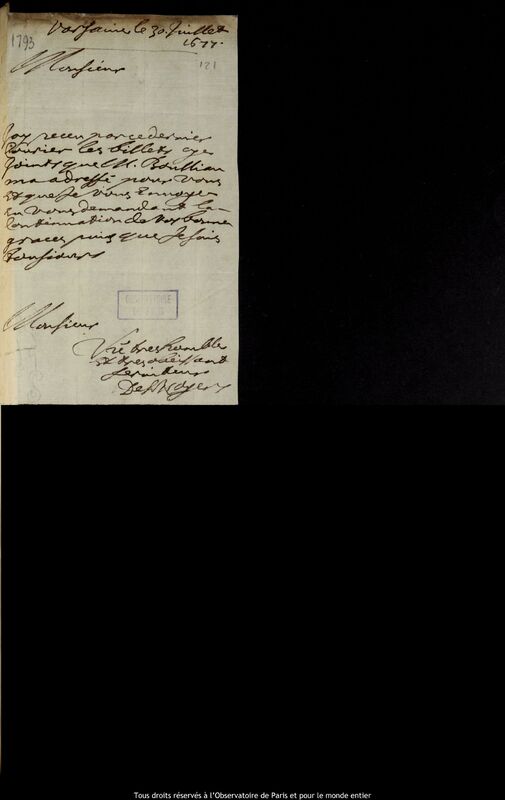 Varsauie le 30. Juillet
1677.
1793
121
Monsieur
Jay receu par ce dernier
Courier les billets cy
Joints que M. Boullian
ma adressé pour vous
Et que Je vous Envoye
En vous demandant la
Continuation de vos bonnes
graces puis que Je suis
tousiours
OBSERVATOIRE
DE PARIS
Monsieur
Vre tres humble
Et tres obeissant
serviteur
Des Noyers
Tous droits réservés à l'Observatoire de Paris et pour le monde entier